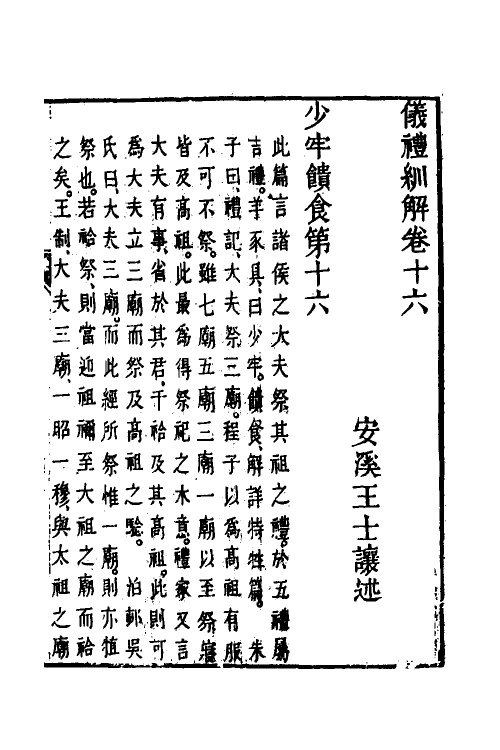 儀禮紃解卷十六
安溪王士讓述
少牢饋食第十六
此篇言諸侯之大夫祭其祖之禮。於五禮屬
吉禮。羊豕具、曰少牢。饋食、解詳特牲篇。　朱
子曰、禮記、大夫祭三廟。程子以為高祖有服
不可不祭。雖七廟五廟三廟一廟以至祭寢
皆及高祖。此最為得祭祀之本意。禮家又言
大夫有事、省於其君、干祫及其高祖。此則可
為大夫立三廟而祭及高祖之驗。　泊邨吳
氏曰、大夫三廟。而此經所祭惟一廟。則亦犆
祭也。若祫祭、則當迎祖禰至大祖之廟而祫
之矣。王制、大夫三廟、一昭一穆、與太祖之廟